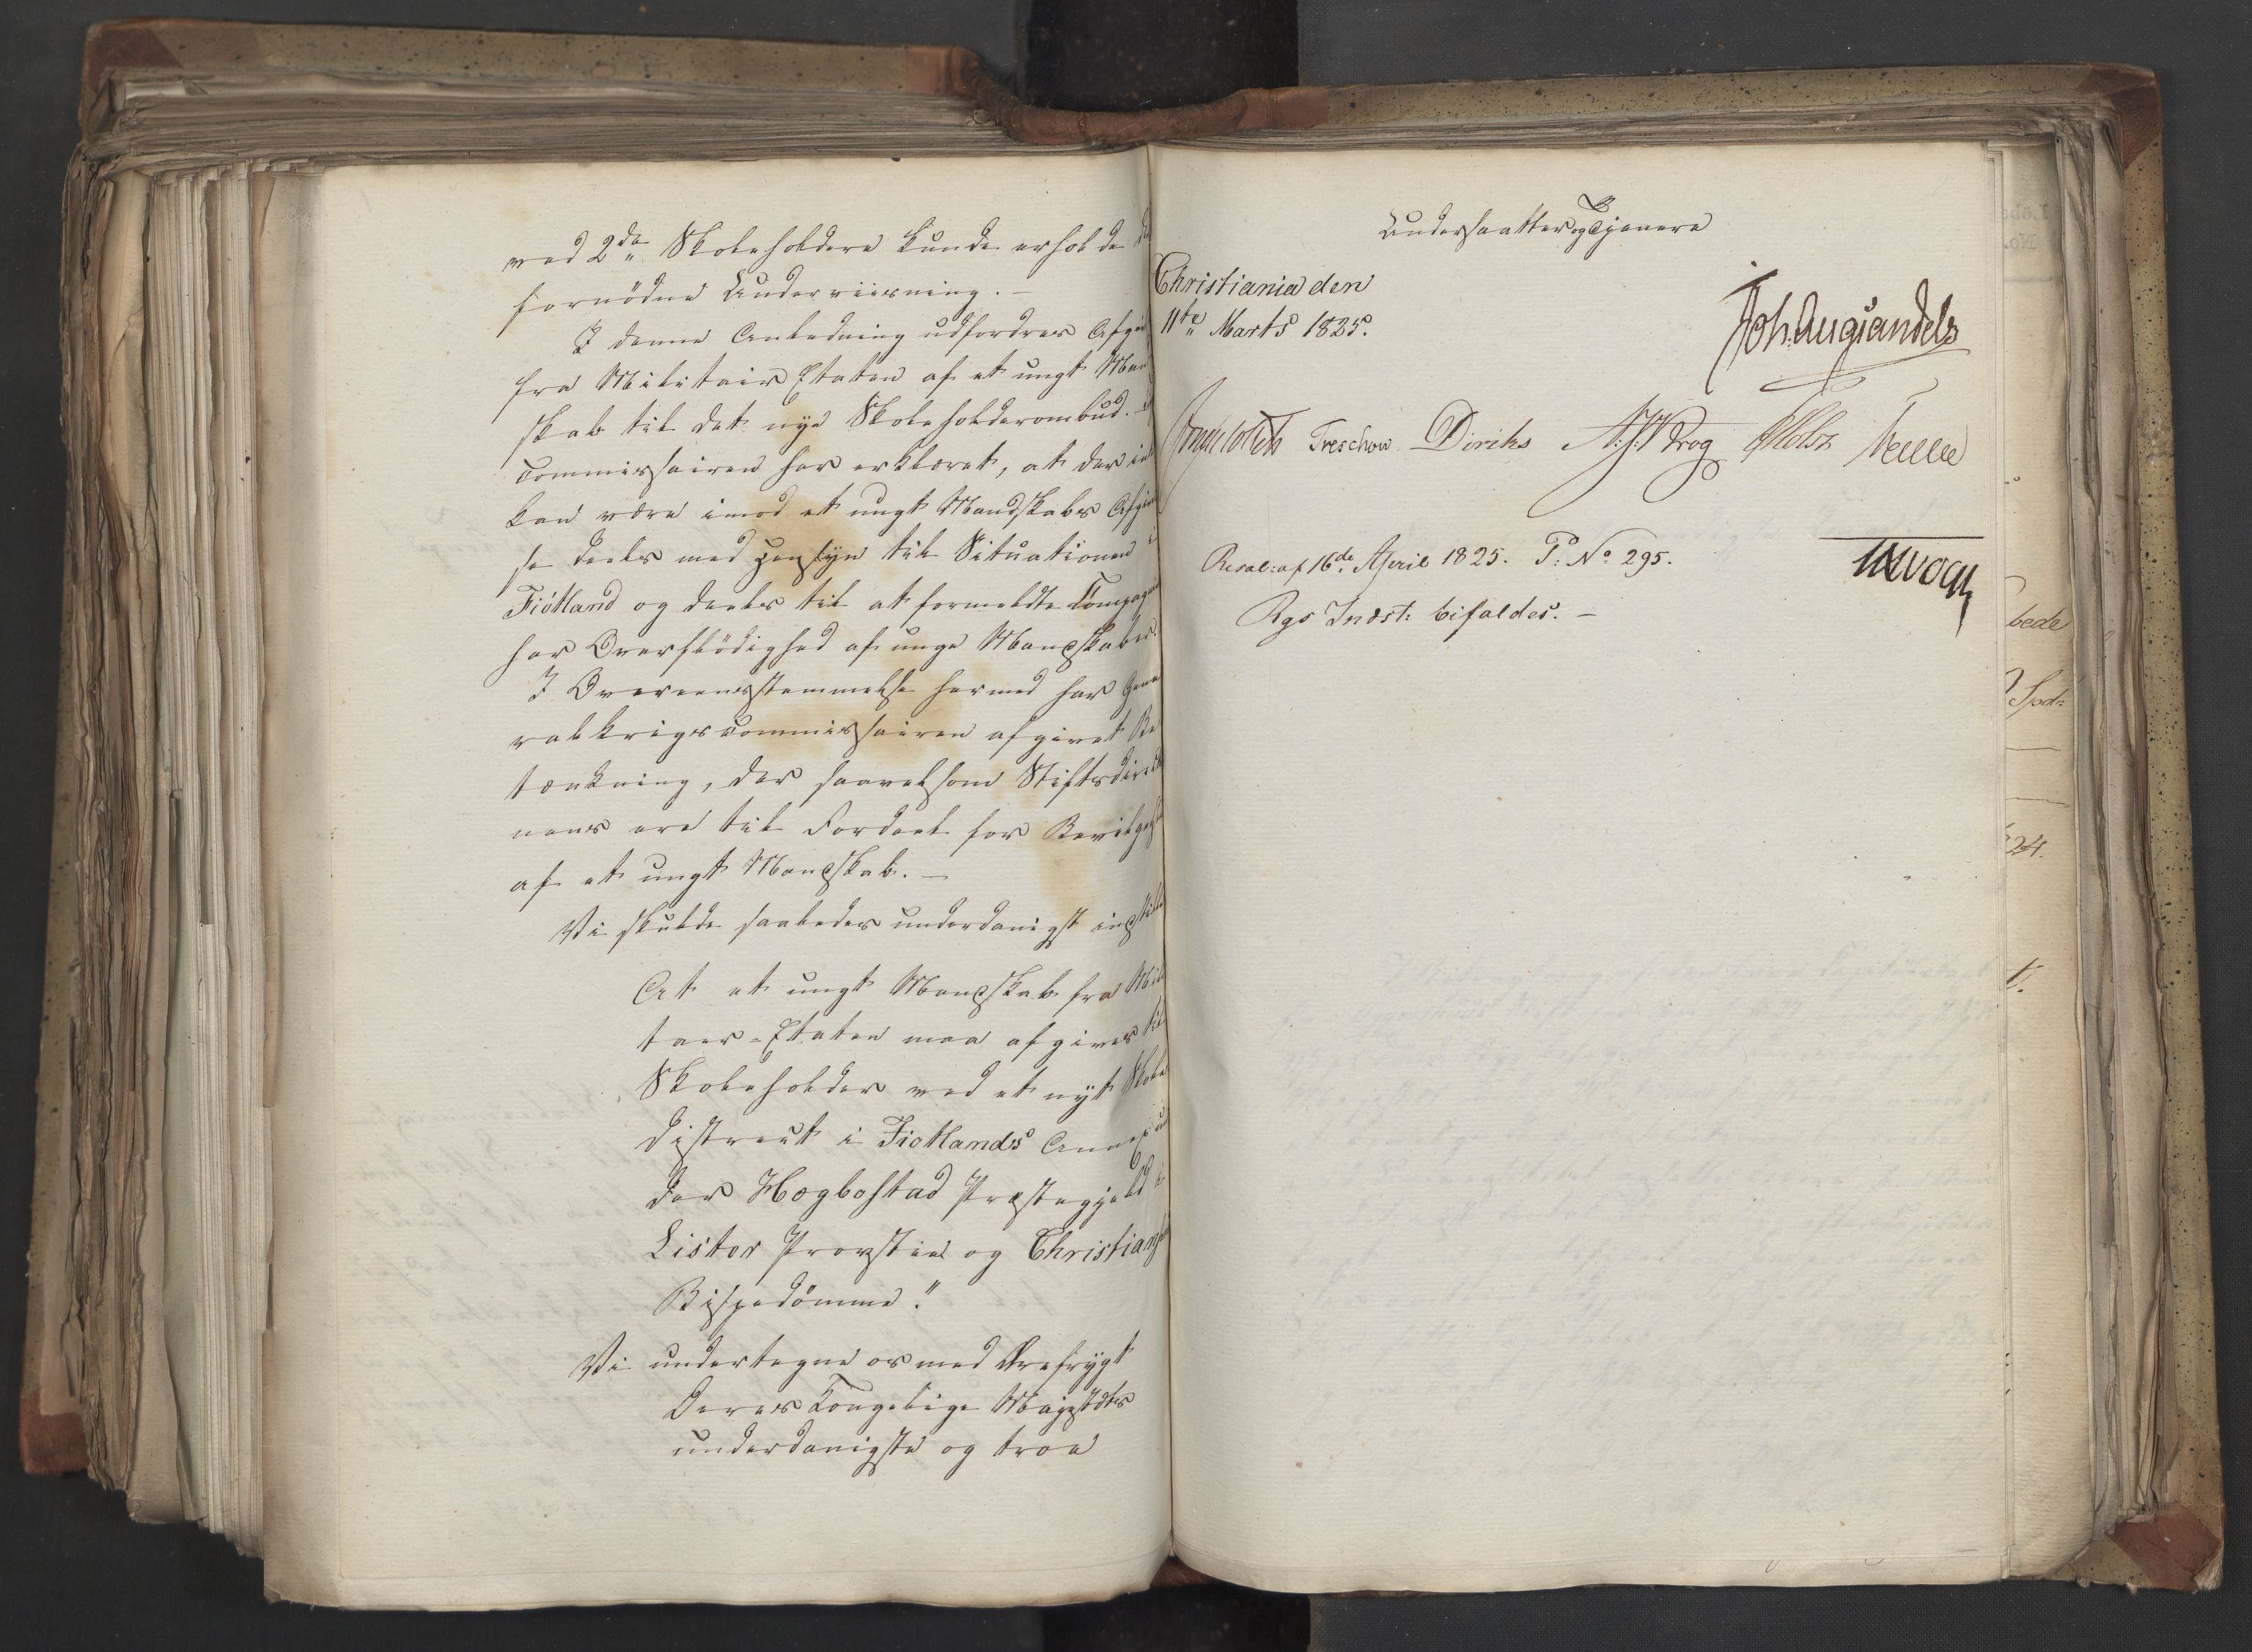 ved 2de Skoleholdere kunde erholde
fornödne Underviisning. —
I denne Anledning udfordres
fra Militair Etaten af et ungt Mand
skab til det nye Skoleholderombud. —
Commissairen har erklæret, at der
kan være imod et ungt Mandskabs
se deels med Hensyn til Situationen i
Fiötland og deels til at formeldte Compagni
har Overflödighed af unge Mandskaber.
I Overeensstemmelse hermed har Gene
ralkrigscommissairen afgivet Be
tænkning, der saavelsom Stiftsdirec
nens ere til Fordeel for Bevilgelse
af et ungt Mandskab. —
Vi skulde saaledes underdanigst indstille
At et ungt Mandskab fra Mili
tair-Etaten maa afgives til
Skoleholder ved et nyt Skole
district i Fiotlands Annex
der Hægbostad Præstegjeld i
Lister Provstie og Christians
Bispedömme."
Vi undertegne os med Ærefrygt
Deres Kongelige Majestæts
underdanigste og troe
Undersaatter og Tjenere
Christiania den
11te Marts 1825.
Joh: Aug: Sandels
Treschow Diriks A: J: Krog Holst
Resol: af 16de April 1825. P: No 295.
Rgs Indst: bifaldes. —
bede
Spd:
24.